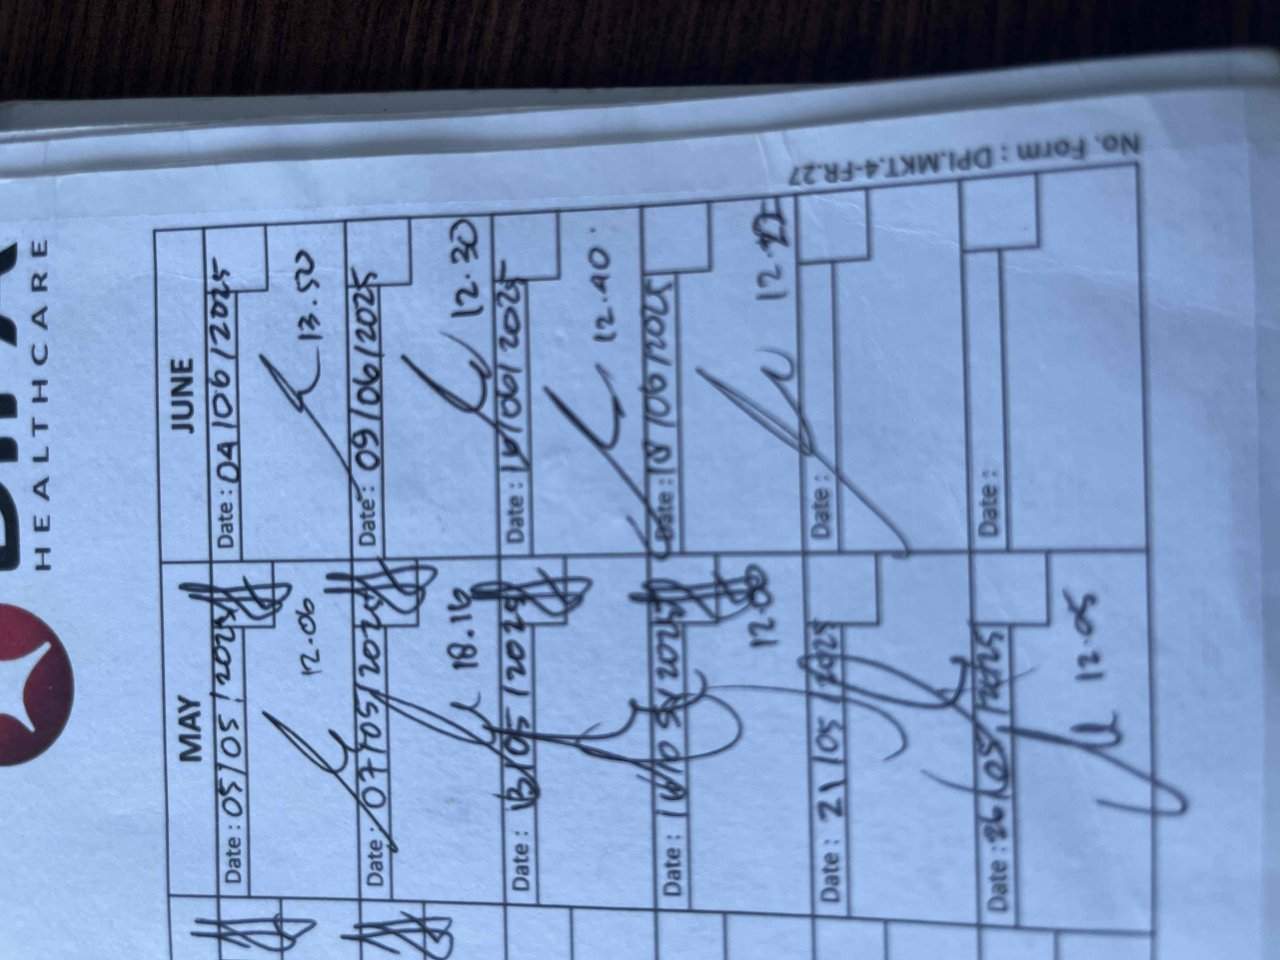 HEALTHCARE
MAY
JUNE
Date : 05/05/2025
12.06
Date : 04/06/2025
13.50
Date : 07/05/2025
18.16
Date : 09/06/2025
12.30
Date : 13/05/2025
Date : 16/06/2025
12.40
Date : 16/05/2025
12.00
Date : 18/06/2025
Date : 21/05/2025
Date :
Date : 26/05/2025
12.05
Date :
No. Form : DPI.MKT.4-FR.27